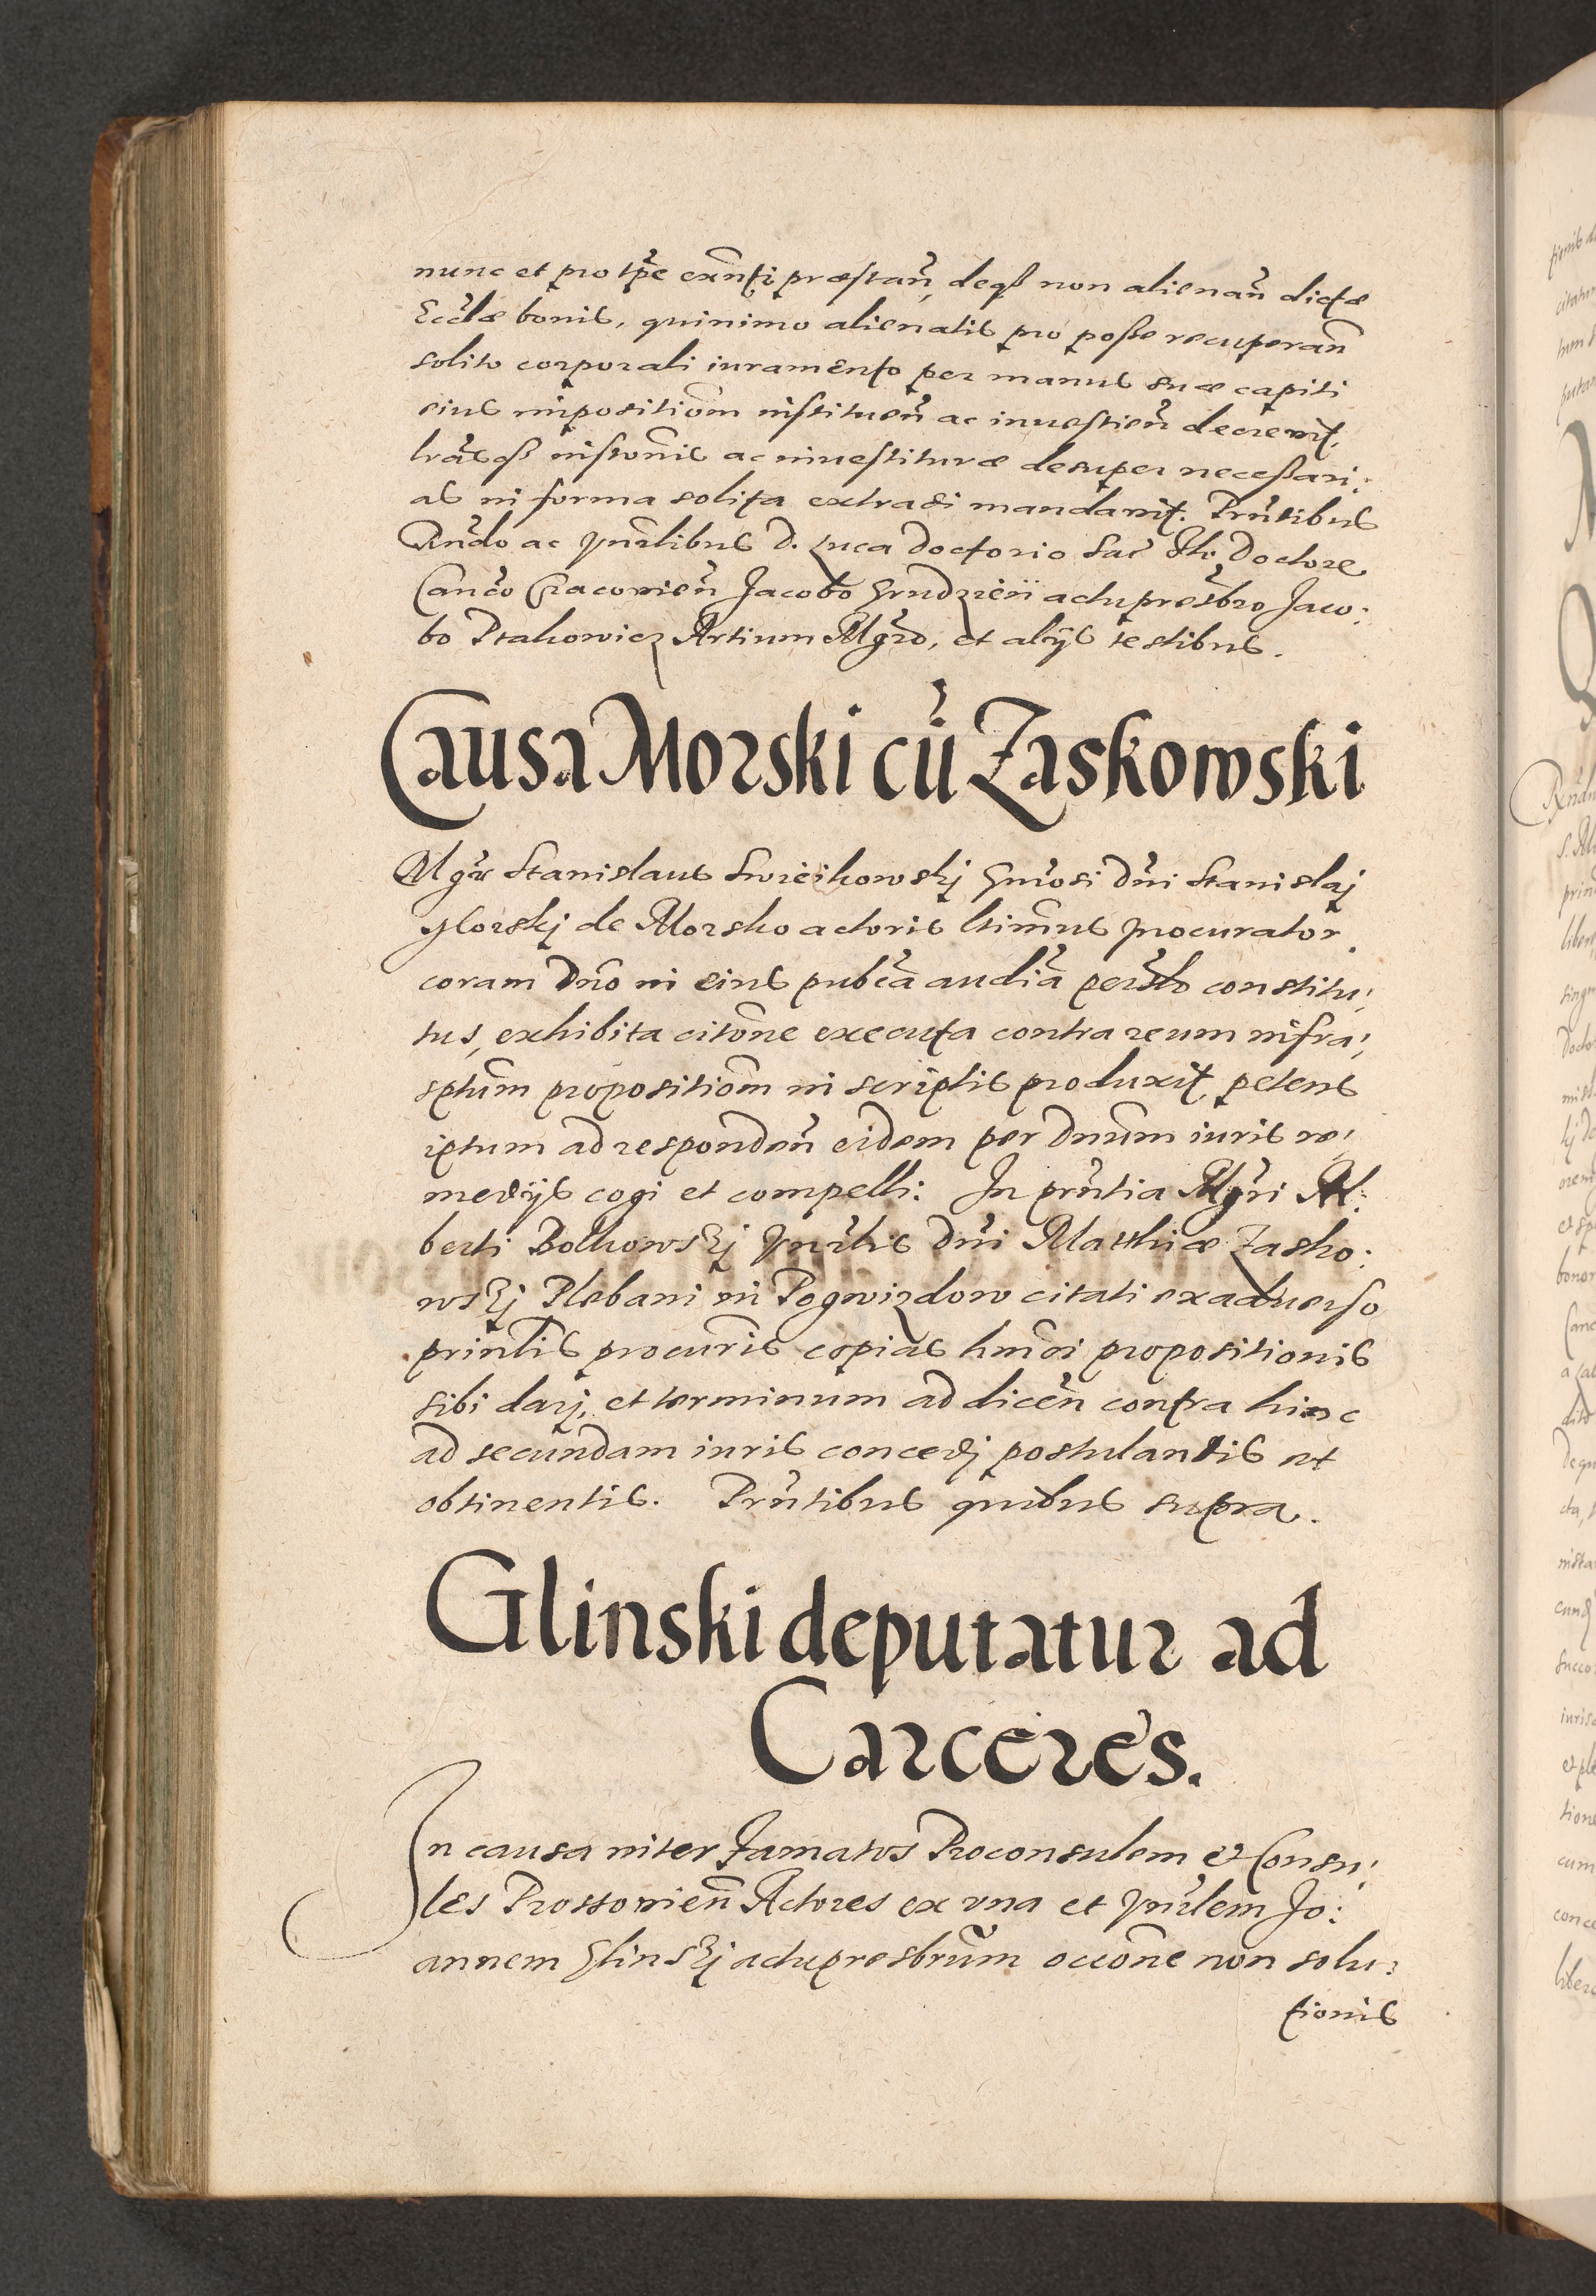 nunc et pro tp̃e exñti præstañ, deqȝ non alienañ dictæ
Ecc̃læ bonis, quinimo alienatis pro posse recuperañ
solito corporali iuramento per manus suæ capiti
eius impositiom̃ instituen̄ ac inuestien̄ decrevit,
lr̃asqȝ instõnis ac inuestituræ desuper necessari:
as in forma solita extradi mandavit. Pr̃ntibus
Rñdo ac Vnr̃libus D. Luca Doctorio Sac̃ Th: Doctore
Canc̃o Cracovien̄ Jacobo Grudzień actu presb̃ro Jaco:
bo Ptakowicz Artium Mgr̃o, et alijs testibus.
Causa Morski cũ Zaskowski
Mgr̃ Stanislaus Swieikowskj Gnr̃osi Dñi Stanislaj
Morskj de Morsko actoris ltim̃us procurator
coram Dño in eius pub̃ca audiã constitu:
tus, exhibita citõne executa contra reum infra:
sptum̃ propositiom̃ in scriptis produxit, petens
iptum ad responden̄ eidem per Dnum̃ iuris re:
medijs cogi et compelli: In pr̃ntia Mgr̃i Al:
berti Bolkowskj Vnr̃lis Dñi Matthiæ Zasko:
wskj Plebani in Pogwizdow citati ex adverso
prin̄lis procur̃is copias hm̃oi propositionis
sibi darj, et terminum ad dicen̄ contra hinc
ad secundam iuris concedj postulantis et
obtinentis. Pr̃ntibus quibus supra.
Glinski deputatur ad
Carceres.
In causa inter famatos Proconsulem et Consu:
les Prossovien̄ Actores ex vna et Vnr̃lem Jo:
annem Glinskj actu presbrum̃ occõne non solu:
tionis